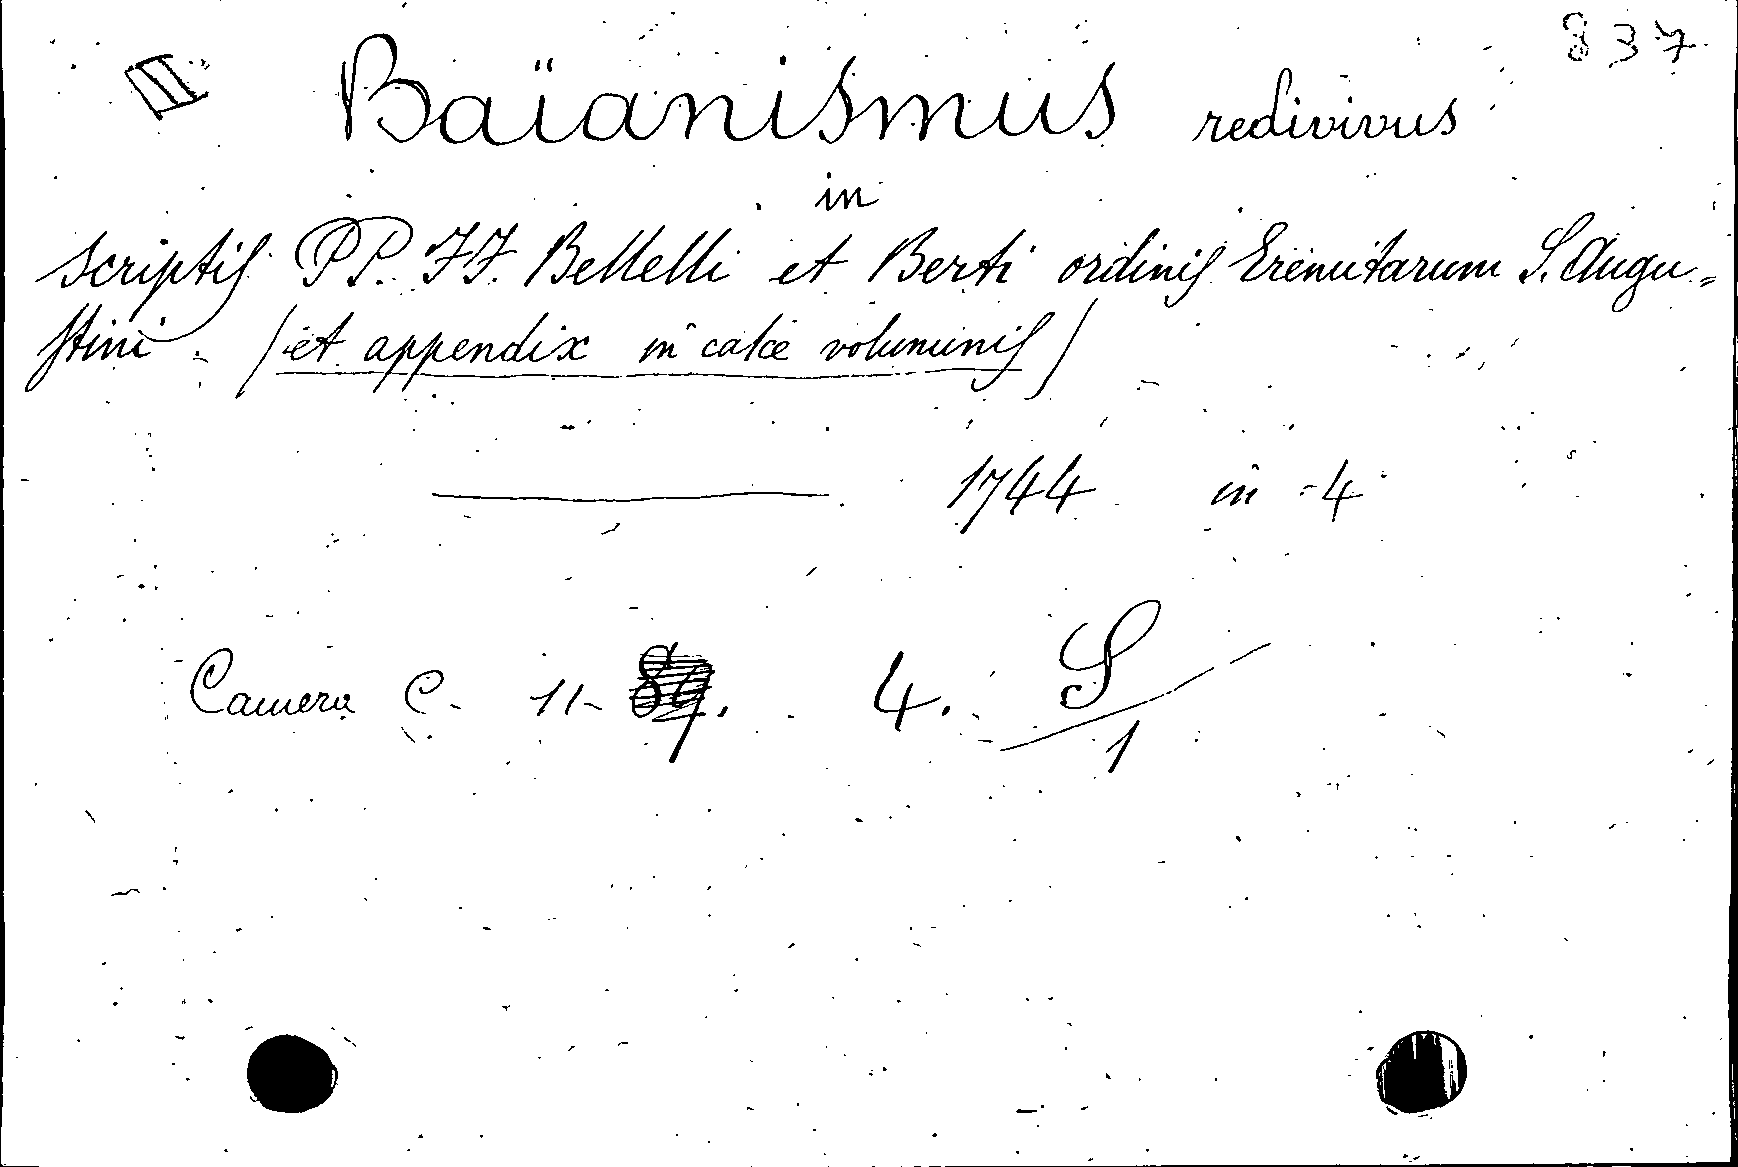 837
Baïanismus redivivus
in
scriptis PP. FF. Bellelli et Berti ordinis Eremitarum S. Augu=
stini - (et appendix in calce voluminis)
1744 in -4
Camera C. 11- 4. S/1